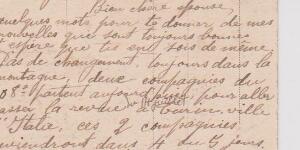 Bien chère épouse,
quelques mots pour te donner de mes
nouvelles que sont toujours bonne
espère que tes en sois de même
Pas de changement, toujours dans la
montagne, deux compagnies du
8e partent aujourd'hui pour aller
le 14 juillet
passer la revue à Turin, ville
d'Italie, ces 2 compagnies
reviendront dans 4 du 5 jours.